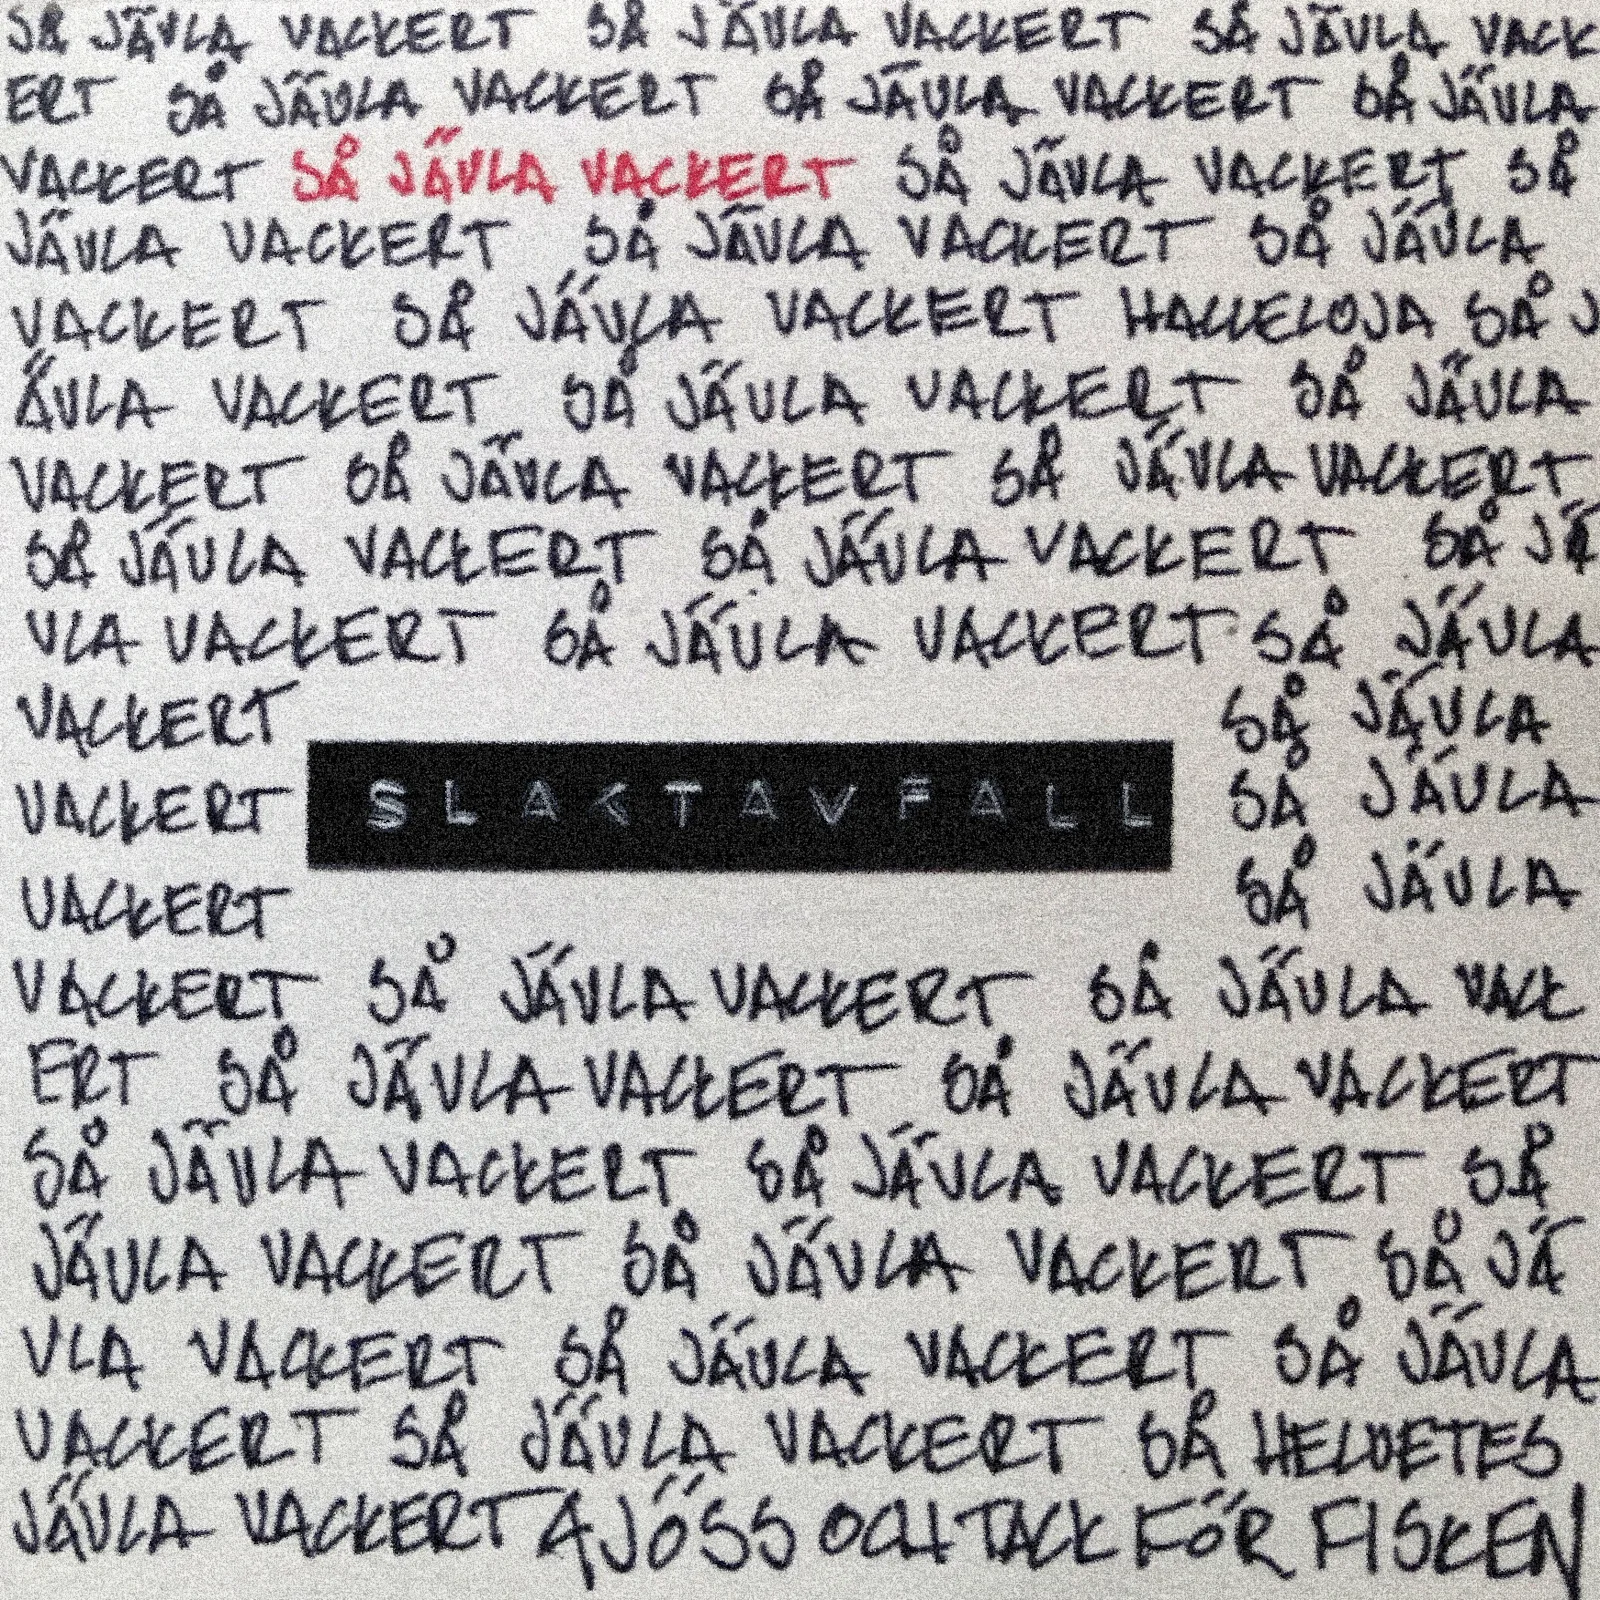 SÅ JÄVLA VACKERT SÅ JÄVLA VACKERT SÅ JÄVLA VACK
ERT SÅ JÄVLA VACKERT SÅ JÄVLA VACKERT SÅ JÄVLA
VACKERT SÅ JÄVLA VACKERT SÅ JÄVLA VACKERT SÅ
JÄVLA VACKERT SÅ JÄVLA VACKERT SÅ JÄVLA
VACKERT SÅ JÄVLA VACKERT HALLELOJA SÅ J
ÄVLA VACKERT SÅ JÄVLA VACKERT SÅ JÄVLA
VACKERT SÅ JÄVLA VACKERT SÅ JÄVLA VACKERT
SÅ JÄVLA VACKERT SÅ JÄVLA VACKERT SÅ JÄ
VLA VACKERT SÅ JÄVLA VACKERT SÅ JÄVLA
VACKERT SÅ JÄVLA
VACKERT SLAKTAVFALL SÅ JÄVLA
VACKERT SÅ JÄVLA
VACKERT SÅ JÄVLA VACKERT SÅ JÄVLA VACK
ERT SÅ JÄVLA VACKERT SÅ JÄVLA VACKERT
SÅ JÄVLA VACKERT SÅ JÄVLA VACKERT SÅ
JÄVLA VACKERT SÅ JÄVLA VACKERT SÅ JÄ
VLA VACKERT SÅ JÄVLA VACKERT SÅ JÄVLA
VACKERT SÅ JÄVLA VACKERT SÅ HELVETES
JÄVLA VACKERT AJÖSS OCH TACK FÖR FISKEN